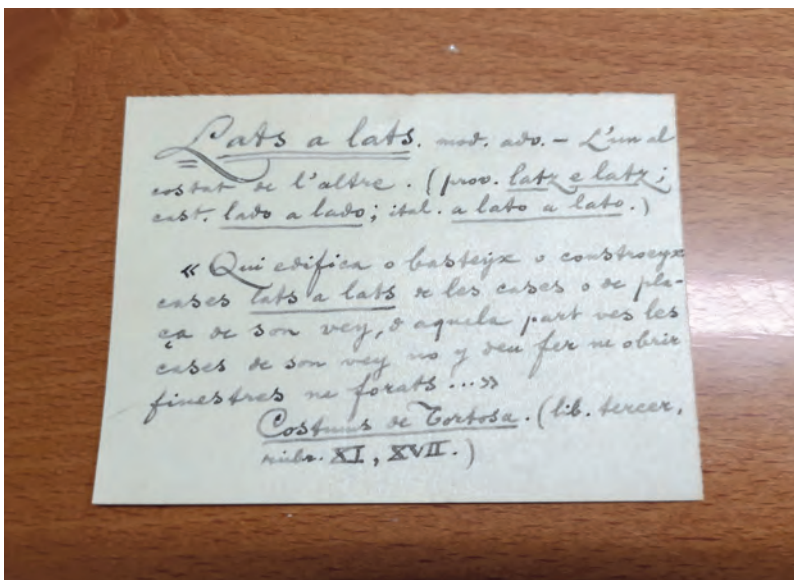 Lats a lats. mod. adv. – L'un al
costat de l'altre. (prov. latz e latz;
cast. lado a lado; ital. a lato a lato.)
« Qui edifica o basteyx o constroeyx
cases lats a lats de les cases o de pla-
ça de son vey, d aquela part ves les
cases de son vey no y deu fer ne obrir
finestres ne forats...»
Costums de Tortosa. (lib. tercer,
rubr. XI, XVII.)